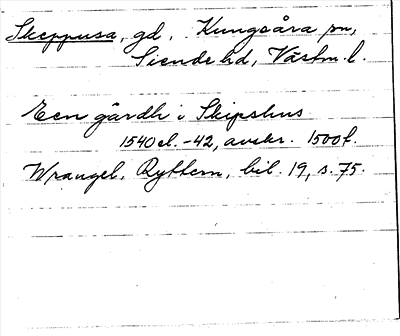 Skeppusa, gd, Kungsåra sn,
Siende hd, Västm. l.
Een gårdh i Skipshus
1540 el. -42, avskr. 1500 f.
Wrangel, Ryttern, bil. 19, s. 75.